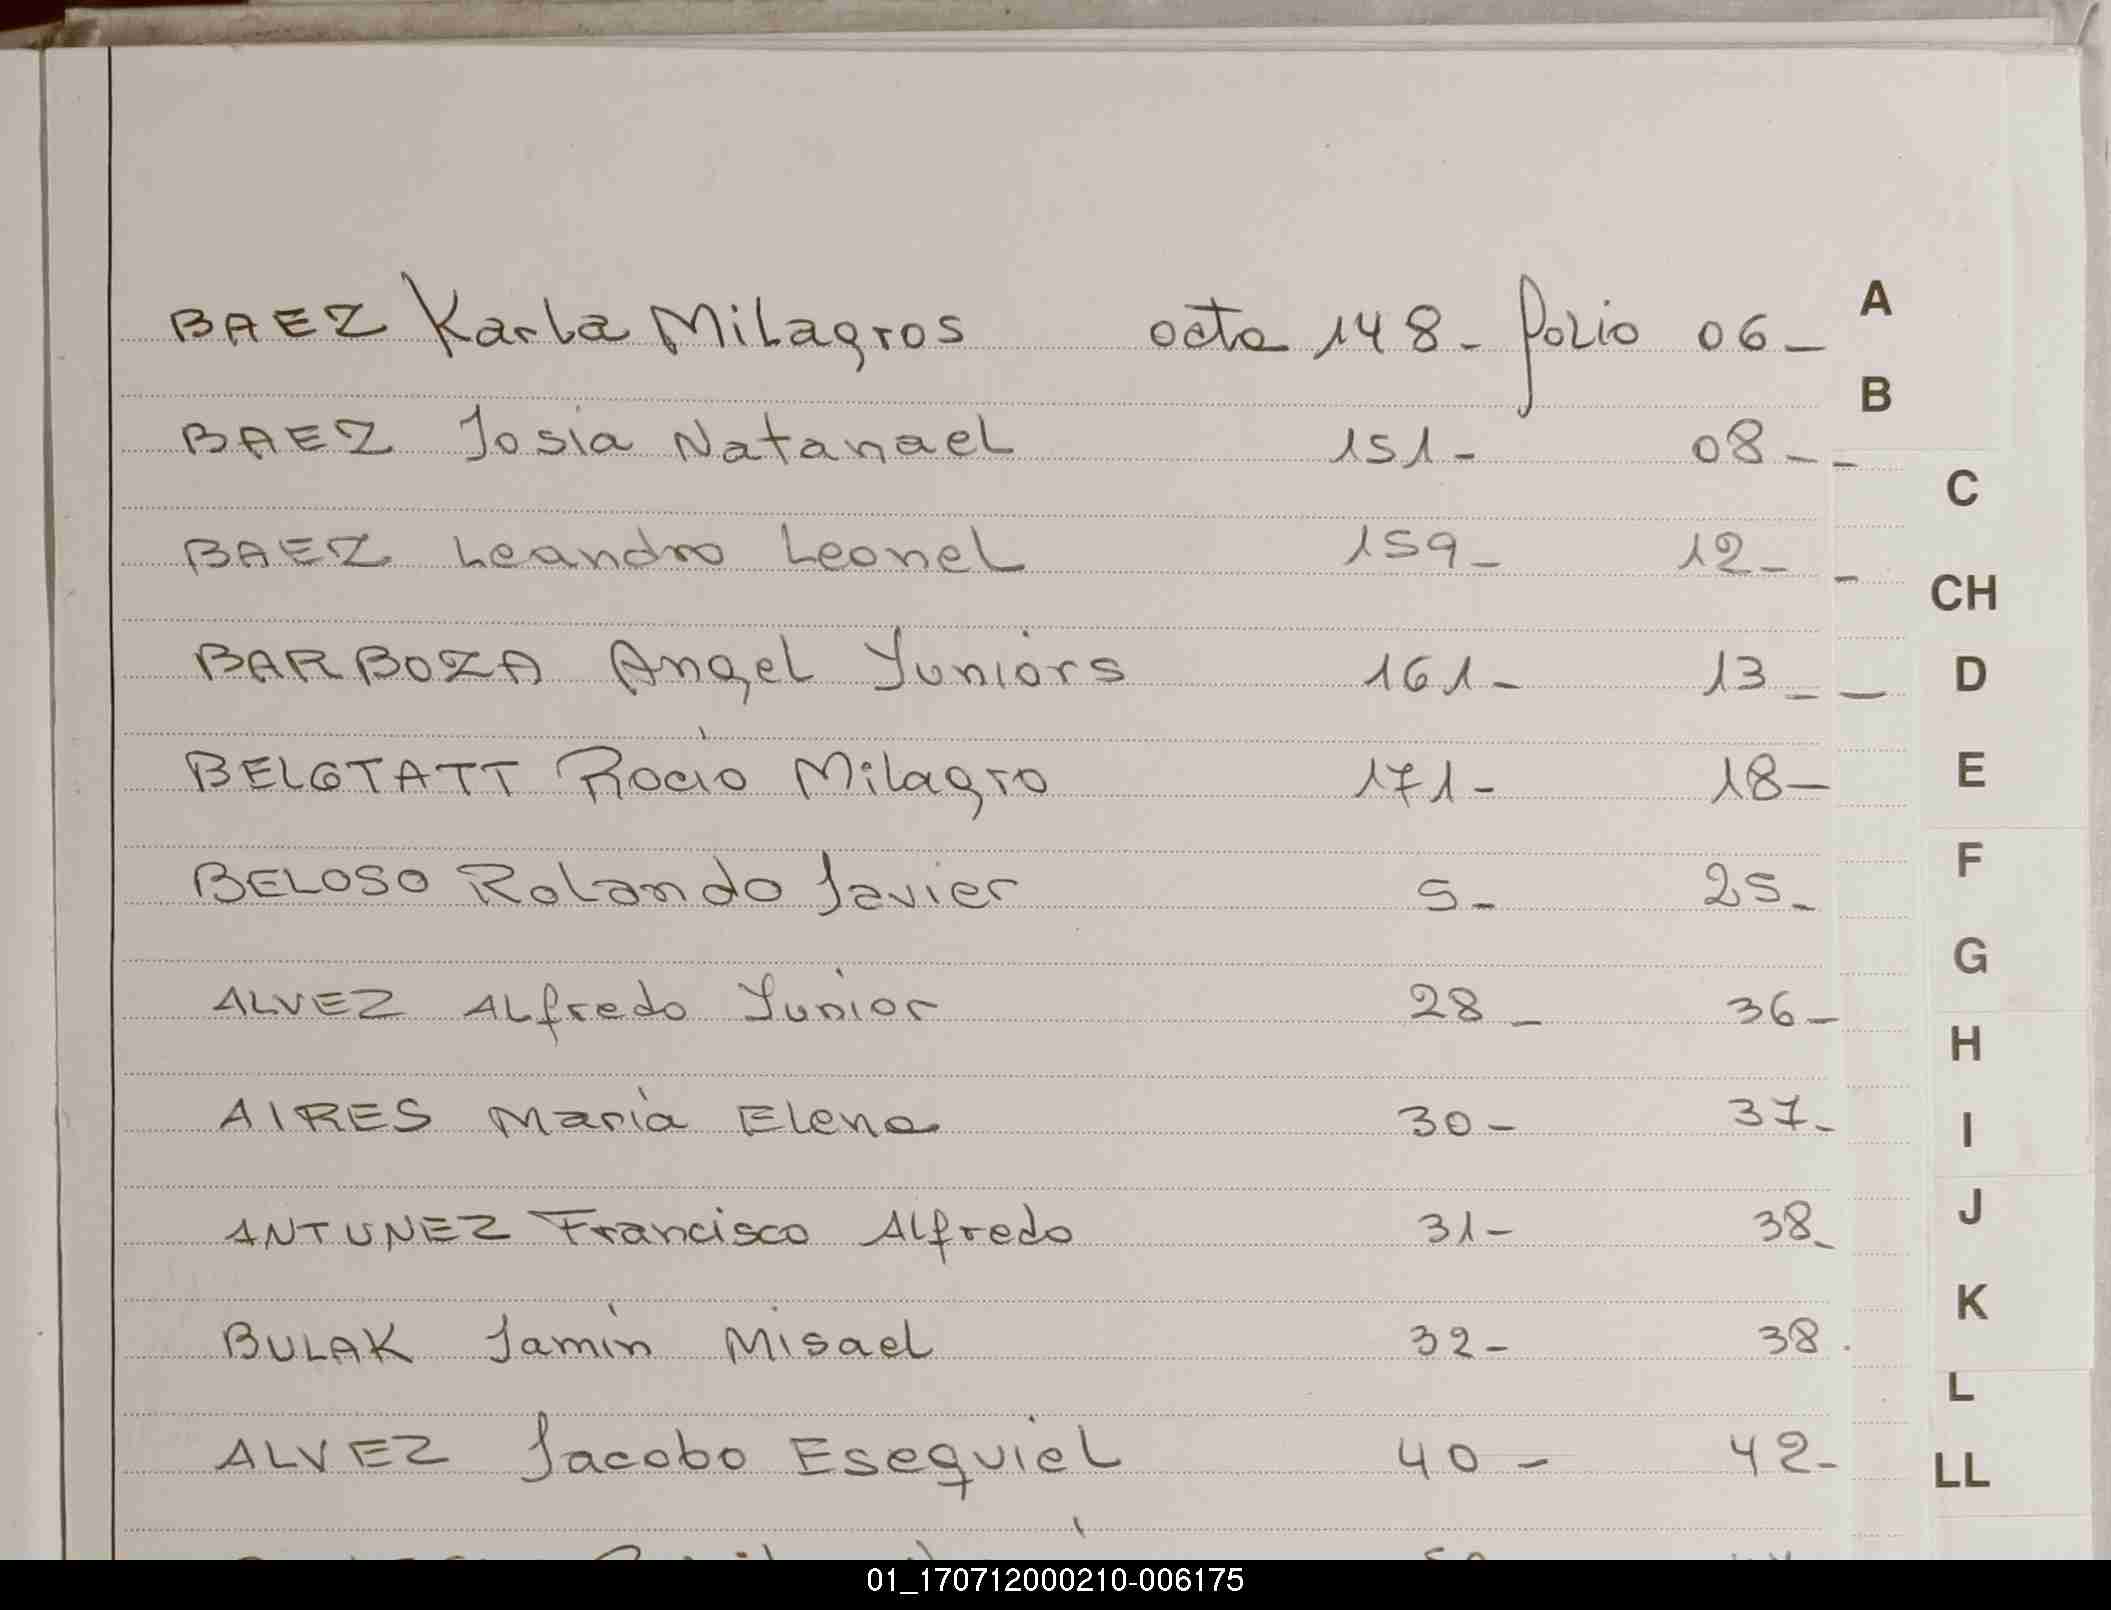 BAEZ Karla Milagros acta 148- folio 06-
BAEZ Josia Natanael 151- 08--
BAEZ Leandro Leonel 159- 12--
BARBOZA Angel Yuniors 161- 13--
BELGTATT Rocío Milagro 171- 18-
BELOSO Rolando Javier 5- 25-
ALVEZ Alfredo Yunior 28- 36-
AIRES María Elena 30- 37-
ANTUNEZ Francisco Alfredo 31- 38-
BULAK Jamín Misael 32- 38.
ALVEZ Jacobo Esequiel 40- 42-
A
B
C
CH
D
E
F
G
H
I
J
K
L
LL
01_170712000210-006175